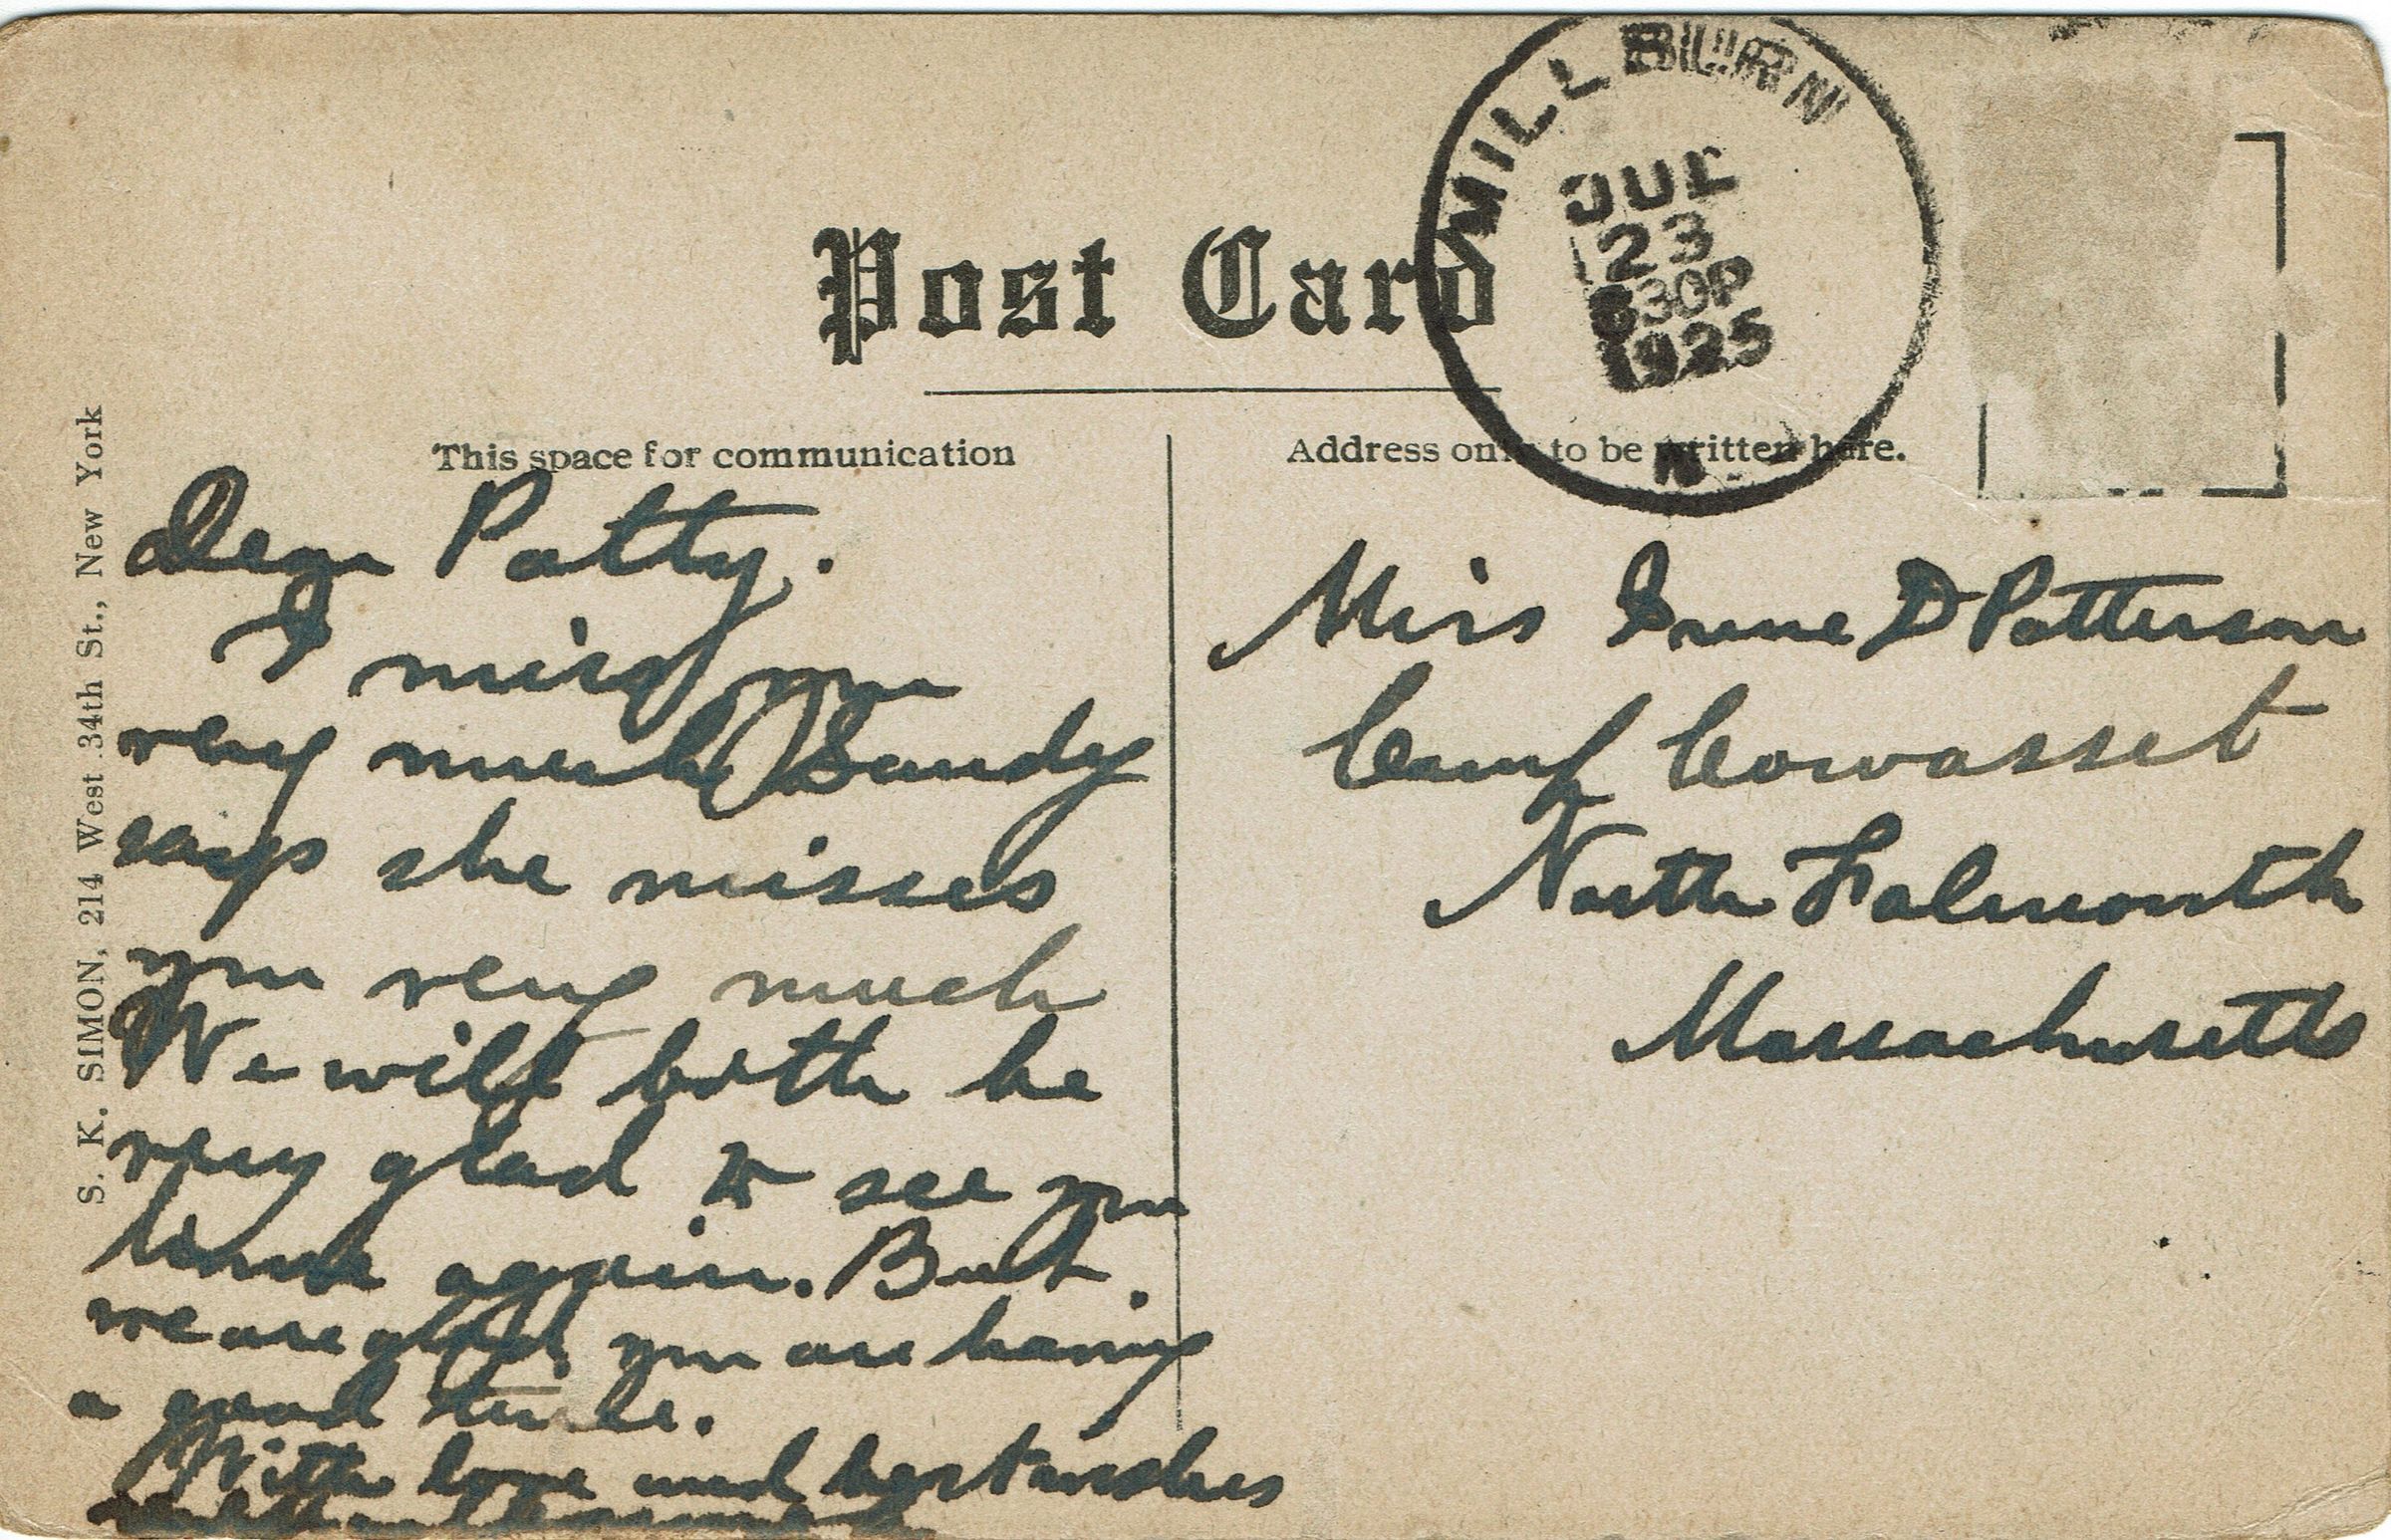 MILLBURN
JUL
23
30P
1925
N.
Post Card
This space for communication
Address only to be written here.
S. K. SIMON, 214 West 34th St., New York
Dear Patty.
I miss you
very much Sandy
says she misses
you very much
We will both be
very glad to see you
home again. But.
we are glad you are having
a good time.
With love and best wishes
Miss Irene D Patterson
Camp Cowasset
North Falmouth
Massachusetts